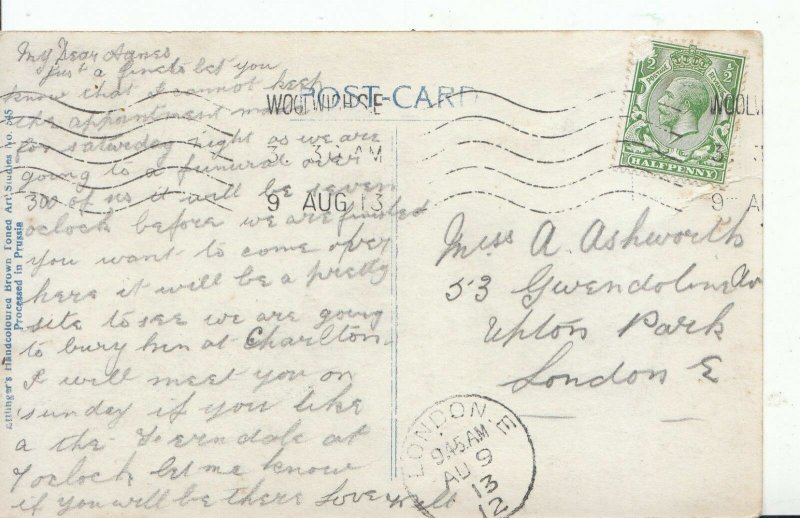 My Dear Agnes
just a line to let you
know that I cannot keep
the appointment made
for saturday night as we are
going to a funural over
300 of us it will be seven
oclock before we are finished
you want to come over
here it will be a pretty
site to see we are going
to bury him at Charlton
I will meet you on
sunday if you like
a the Ferndale at
7 oclock let me know
if you will be there Love Walt
POST-CARD
WOOLWICH S.E
3. 3 AM
9 AUG 13
HALFPENNY
WOOL
3
9 A
Miss A. Ashworth
53 Gwendoline Av
Upton Park
London E
LONDON.E
9.45.AM
AU 9
13
12
Ettlinger's Handcoloured Brown Toned Art Studies No. 545
Processed in Prussia